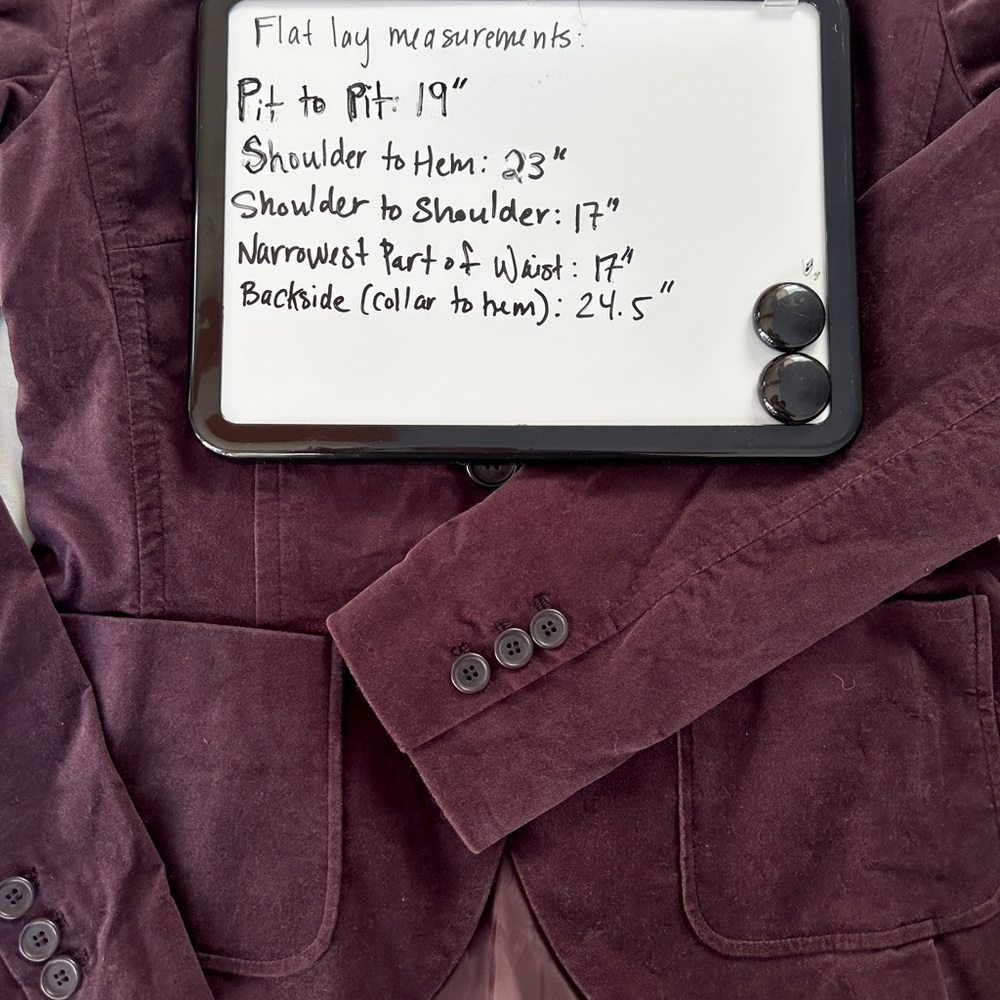 Flat lay measurements:
Pit to Pit: 19"
Shoulder to Hem: 23"
Shoulder to Shoulder: 17"
Narrowest Part of Waist: 17"
Backside (collar to hem): 24.5"